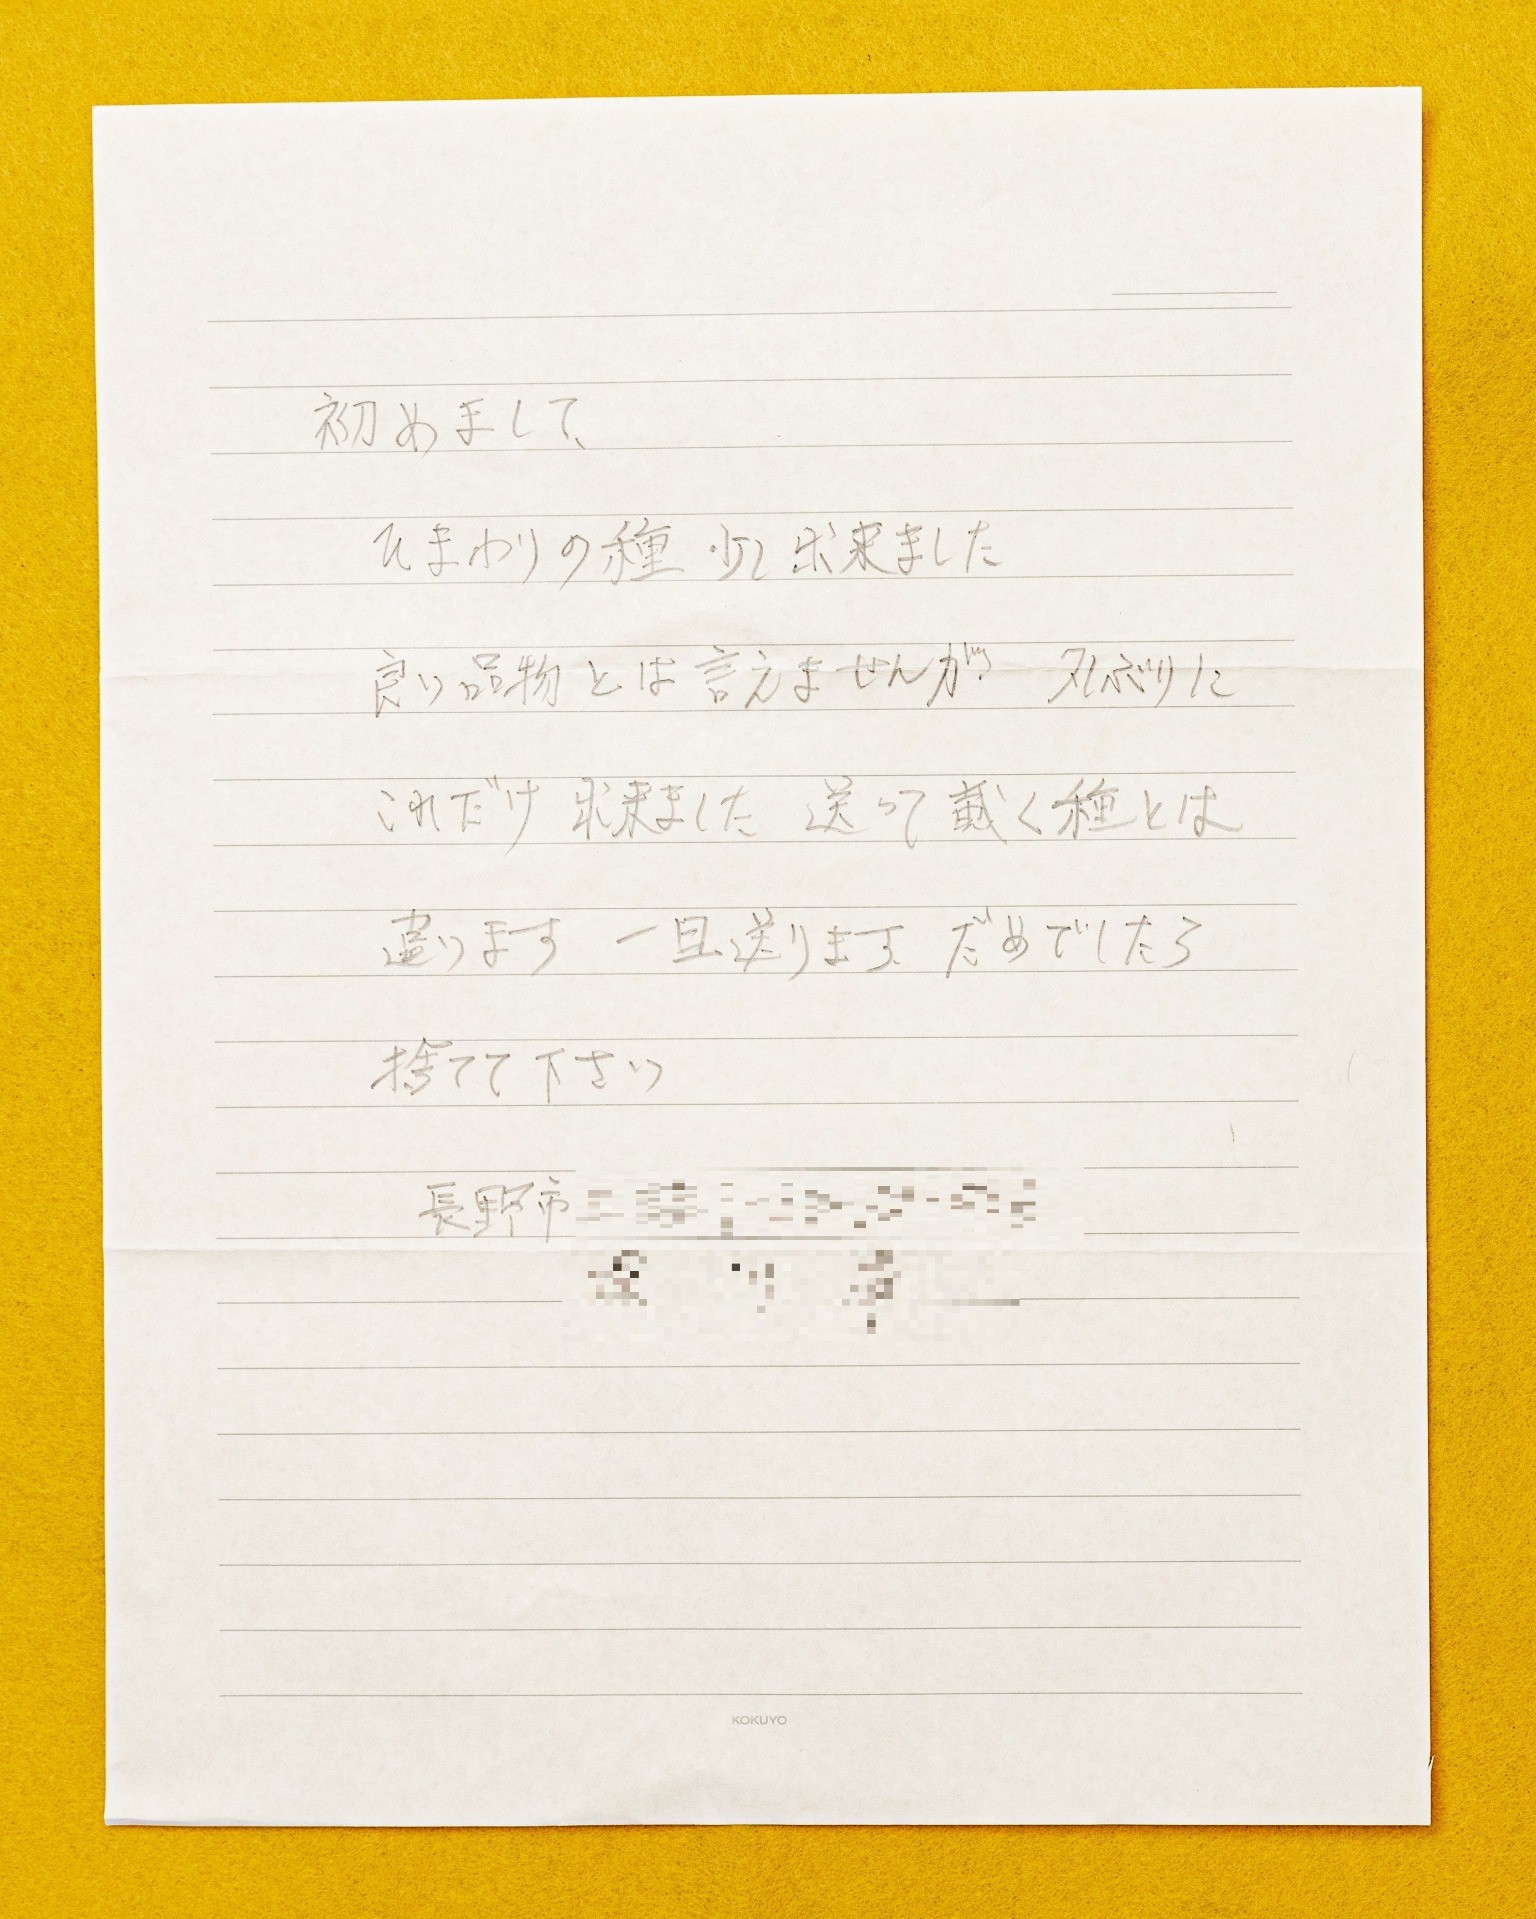 初めまして、
ひまわりの種 少し出来ました
良い品物とは言えませんが 久しぶりに
これだけ出来ました 送って戴く種とは
違います 一旦送ります、だめでしたら
捨てて下さい
長野市
KOKUYO